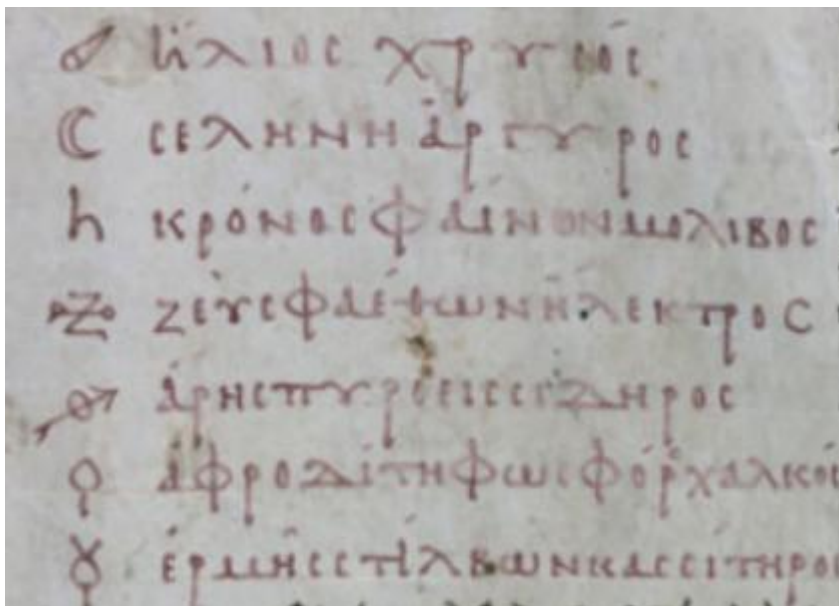 ἥλιος χρυσός
σελήνη ἄργυρος
κρόνος φαίνων μόλιβος
ζεὺς φαέθων ἤλεκτρος
ἄρης πυρόεις σίδηρος
ἀφροδίτη φωσφόρ χαλκός
ἑρμῆς στίλβων κασσίτηρος